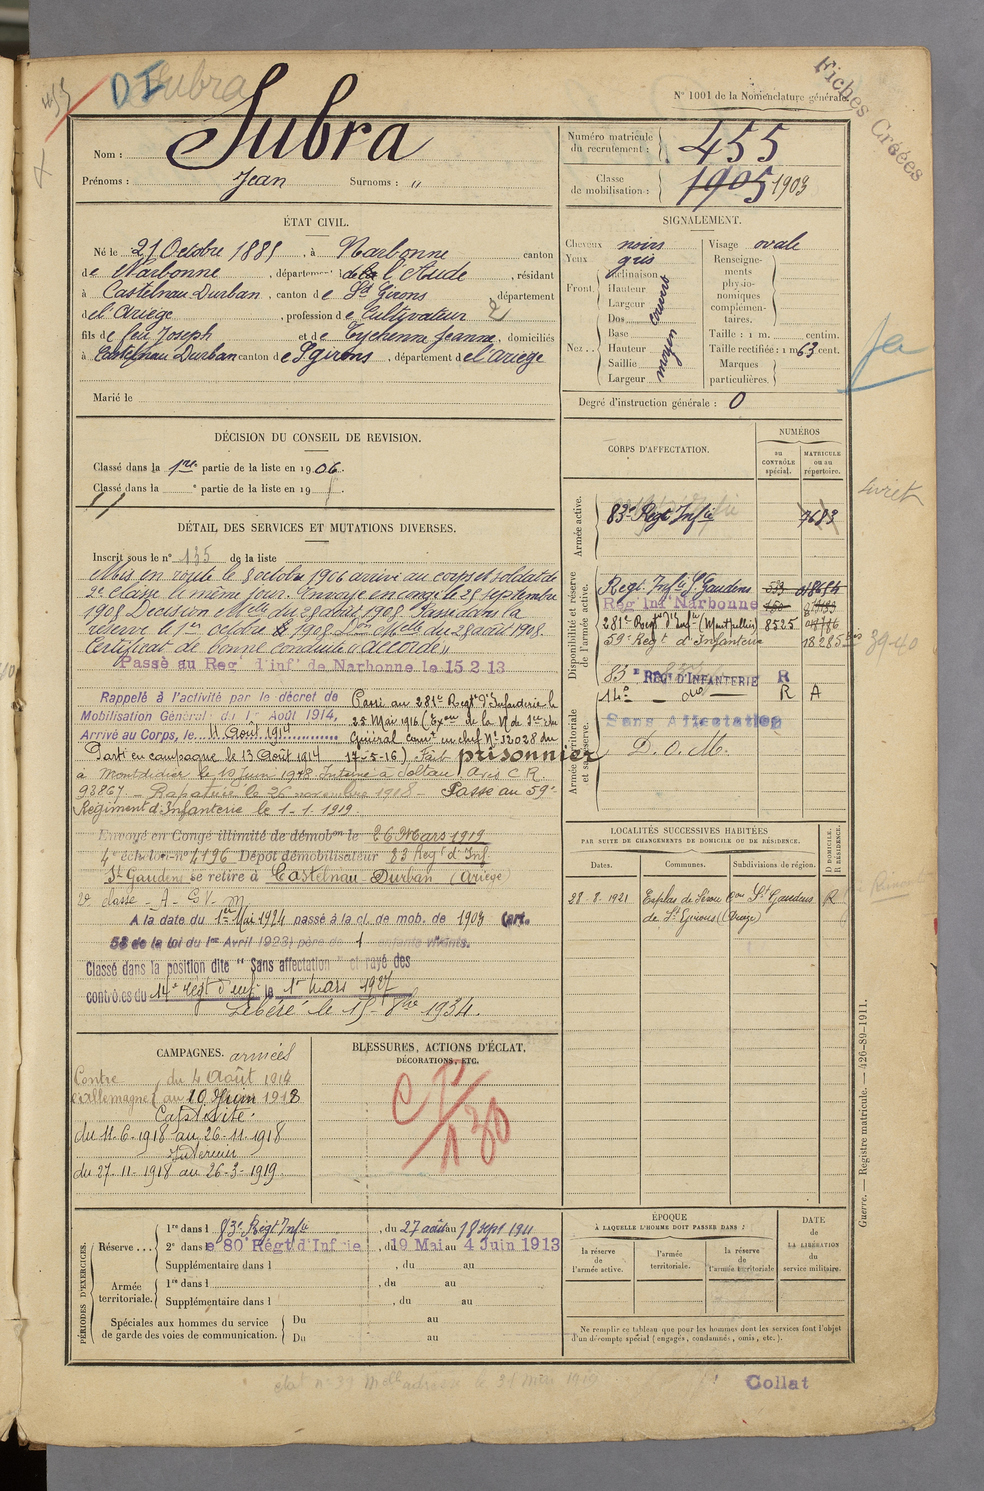 455
DI
Subra
N° 1001 de la Nomenclature générale.
Fiches Créées
Nom : Subra
Prénoms : Jean Surnoms : "
Numéro matricule du recrutement : 455
Classe de mobilisation : 1905 1903
ÉTAT CIVIL.
Né le 21 Octobre 1885, à Narbonne canton
de Narbonne, département de l'Aude, résidant
à Castelnau Durban, canton de St Girons département
de l'Ariège, profession de Cultivateur 2
fils de feu Joseph et de Eychenne Jeanne, domiciliés
à Castelnau Durban canton de St girons, département de l'ariège
Marié le
SIGNALEMENT.
Cheveux noirs
Yeux gris
Front. Inclinaison
Hauteur
Largeur
couvert
Nez.. Dos
Base
Hauteur
Saillie
Largeur
moyen
Visage ovale
Renseignements physionomiques complémentaires.
Taille : 1 m. centim.
Taille rectifiée : 1 m 63 cent.
Marques particulières.
Degré d'instruction générale : 0
DÉCISION DU CONSEIL DE REVISION.
Classé dans la 1re partie de la liste en 1906.
Classé dans la e partie de la liste en 19
DÉTAIL DES SERVICES ET MUTATIONS DIVERSES.
Inscrit sous le n° 135 de la liste
Mis en route le 8 octobre 1906 arrivé au corps et soldat de
2e classe le même jour. Envoyé en congé le 25 septembre
1908 Décision Melle du 28 août 1908. Passé dans la
réserve le 1er octobre 1908 Don Melle du 28 août 1908.
Certificat de bonne conduite "Accordé"
Passé au Reg' d'inf' de Narbonne le 15 2 13
Rappelé à l'activité par le décret de
Mobilisation Générale du 1er Août 1914.
Arrivé au Corps, le 11 Août 1914
Parti en campagne le 13 Août 1914
Passé au 281e Regt d'Infanterie le
25 Mai 1916 (Exon de la N de sce du
Général Comt en chef N° 32028 du
17-5-16) Fait prisonnier
à Montdidier le 10 Juin 1918 Interné à Soltau Avis C.R.
93867 – Rapatrié le 26 novembre 1918 – Passé au 59e
Régiment d'Infanterie le 1-1-1919.
Envoyé en Congé illimité de démobon le 26 Mars 1919
4e échelon n° 4196 Dépôt démobilisateur 83 Regt d'Inf.
St Gaudens se retire à Castelnau-Durban (Ariège)
A la date du 1er Mai 1924 passé à la cl. de mob. de 1903 (art.
58 de la loi du 1er Avril 1923) père de 1 enfants vivants.
Classé dans la position dite " Sans affectation " et rayé des
contrôles du 14e Regt d'inf le 1er mars 1927
Libéré le 15-8bre 1934.
CORPS D'AFFECTATION.
NUMÉROS
au CONTRÔLE spécial.
MATRICULE ou au répertoire.
Armée active.
83e Regt Infie 7683
Disponibilité et réserve de l'armée active.
Regt. Infie St Gaudens
Reg' Inf' Narbonne
281e Regt d'Infie (Montpellier) 8525
59e Regt d'Infanterie
83 e REG. D'INFANTERIE R
14e – do – R A
Armée territoriale et sa réserve.
Sans Affectation
D. O. M.
livret
39-40
LOCALITÉS SUCCESSIVES HABITÉES
PAR SUITE DE CHANGEMENTS DE DOMICILE OU DE RÉSIDENCE.
Dates. Communes. Subdivisions de région. D. DOMICILE. R. RÉSIDENCE.
28-8-1921 Esplas de Sérou Con St Gaudens R
de St Girons (Ariège)
CAMPAGNES. armées
Contre l'allemagne du 4 Août 1914
au 10 Juin 1918
Captivité.
du 11.6.1918 au 26-11-1918
Intérieur
du 27-11-1918 au 26-3-1919.
BLESSURES, ACTIONS D'ÉCLAT, DÉCORATIONS, ETC.
PÉRIODES D'EXERCICES.
Réserve... 1re dans l 83e Régt Infie, du 27 août au 18 sept 1911
2e dans e 80e Régt d'Inf ie, du 19 Mai au 4 Juin 1913
Supplémentaire dans l , du au
Armée territoriale. 1re dans l , du au
Supplémentaire dans l , du au
Spéciales aux hommes du service de garde des voies de communication. Du au
Du au
ÉPOQUE
À LAQUELLE L'HOMME DOIT PASSER DANS :
la réserve de l'armée active.
l'armée territoriale.
la réserve de l'armée territoriale
DATE de LA LIBÉRATION du service militaire.
Ne remplir ce tableau que pour les hommes dont les services font l'objet
d'un décompte spécial (engagés, condamnés, omis, etc.).
Guerre. — Registre matricule. — 426-89-1911.
Collat